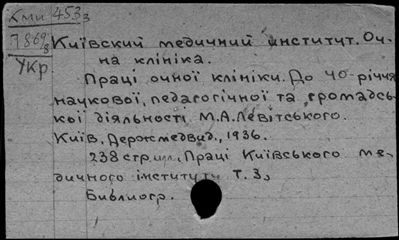 Кми 4533
П 869/8
Київский медичний институт. Оч-
на клініка.
Укр.
Праці очної клініки. До 40-річчя
наукової, педагогічної та громадсь-
кої діяльності М.А.Левітського.
Київ, Держмедвид., 1936.
238 стр. илл., Праці Київського ме-
дичного інституту Т. 3,
Библиогр.